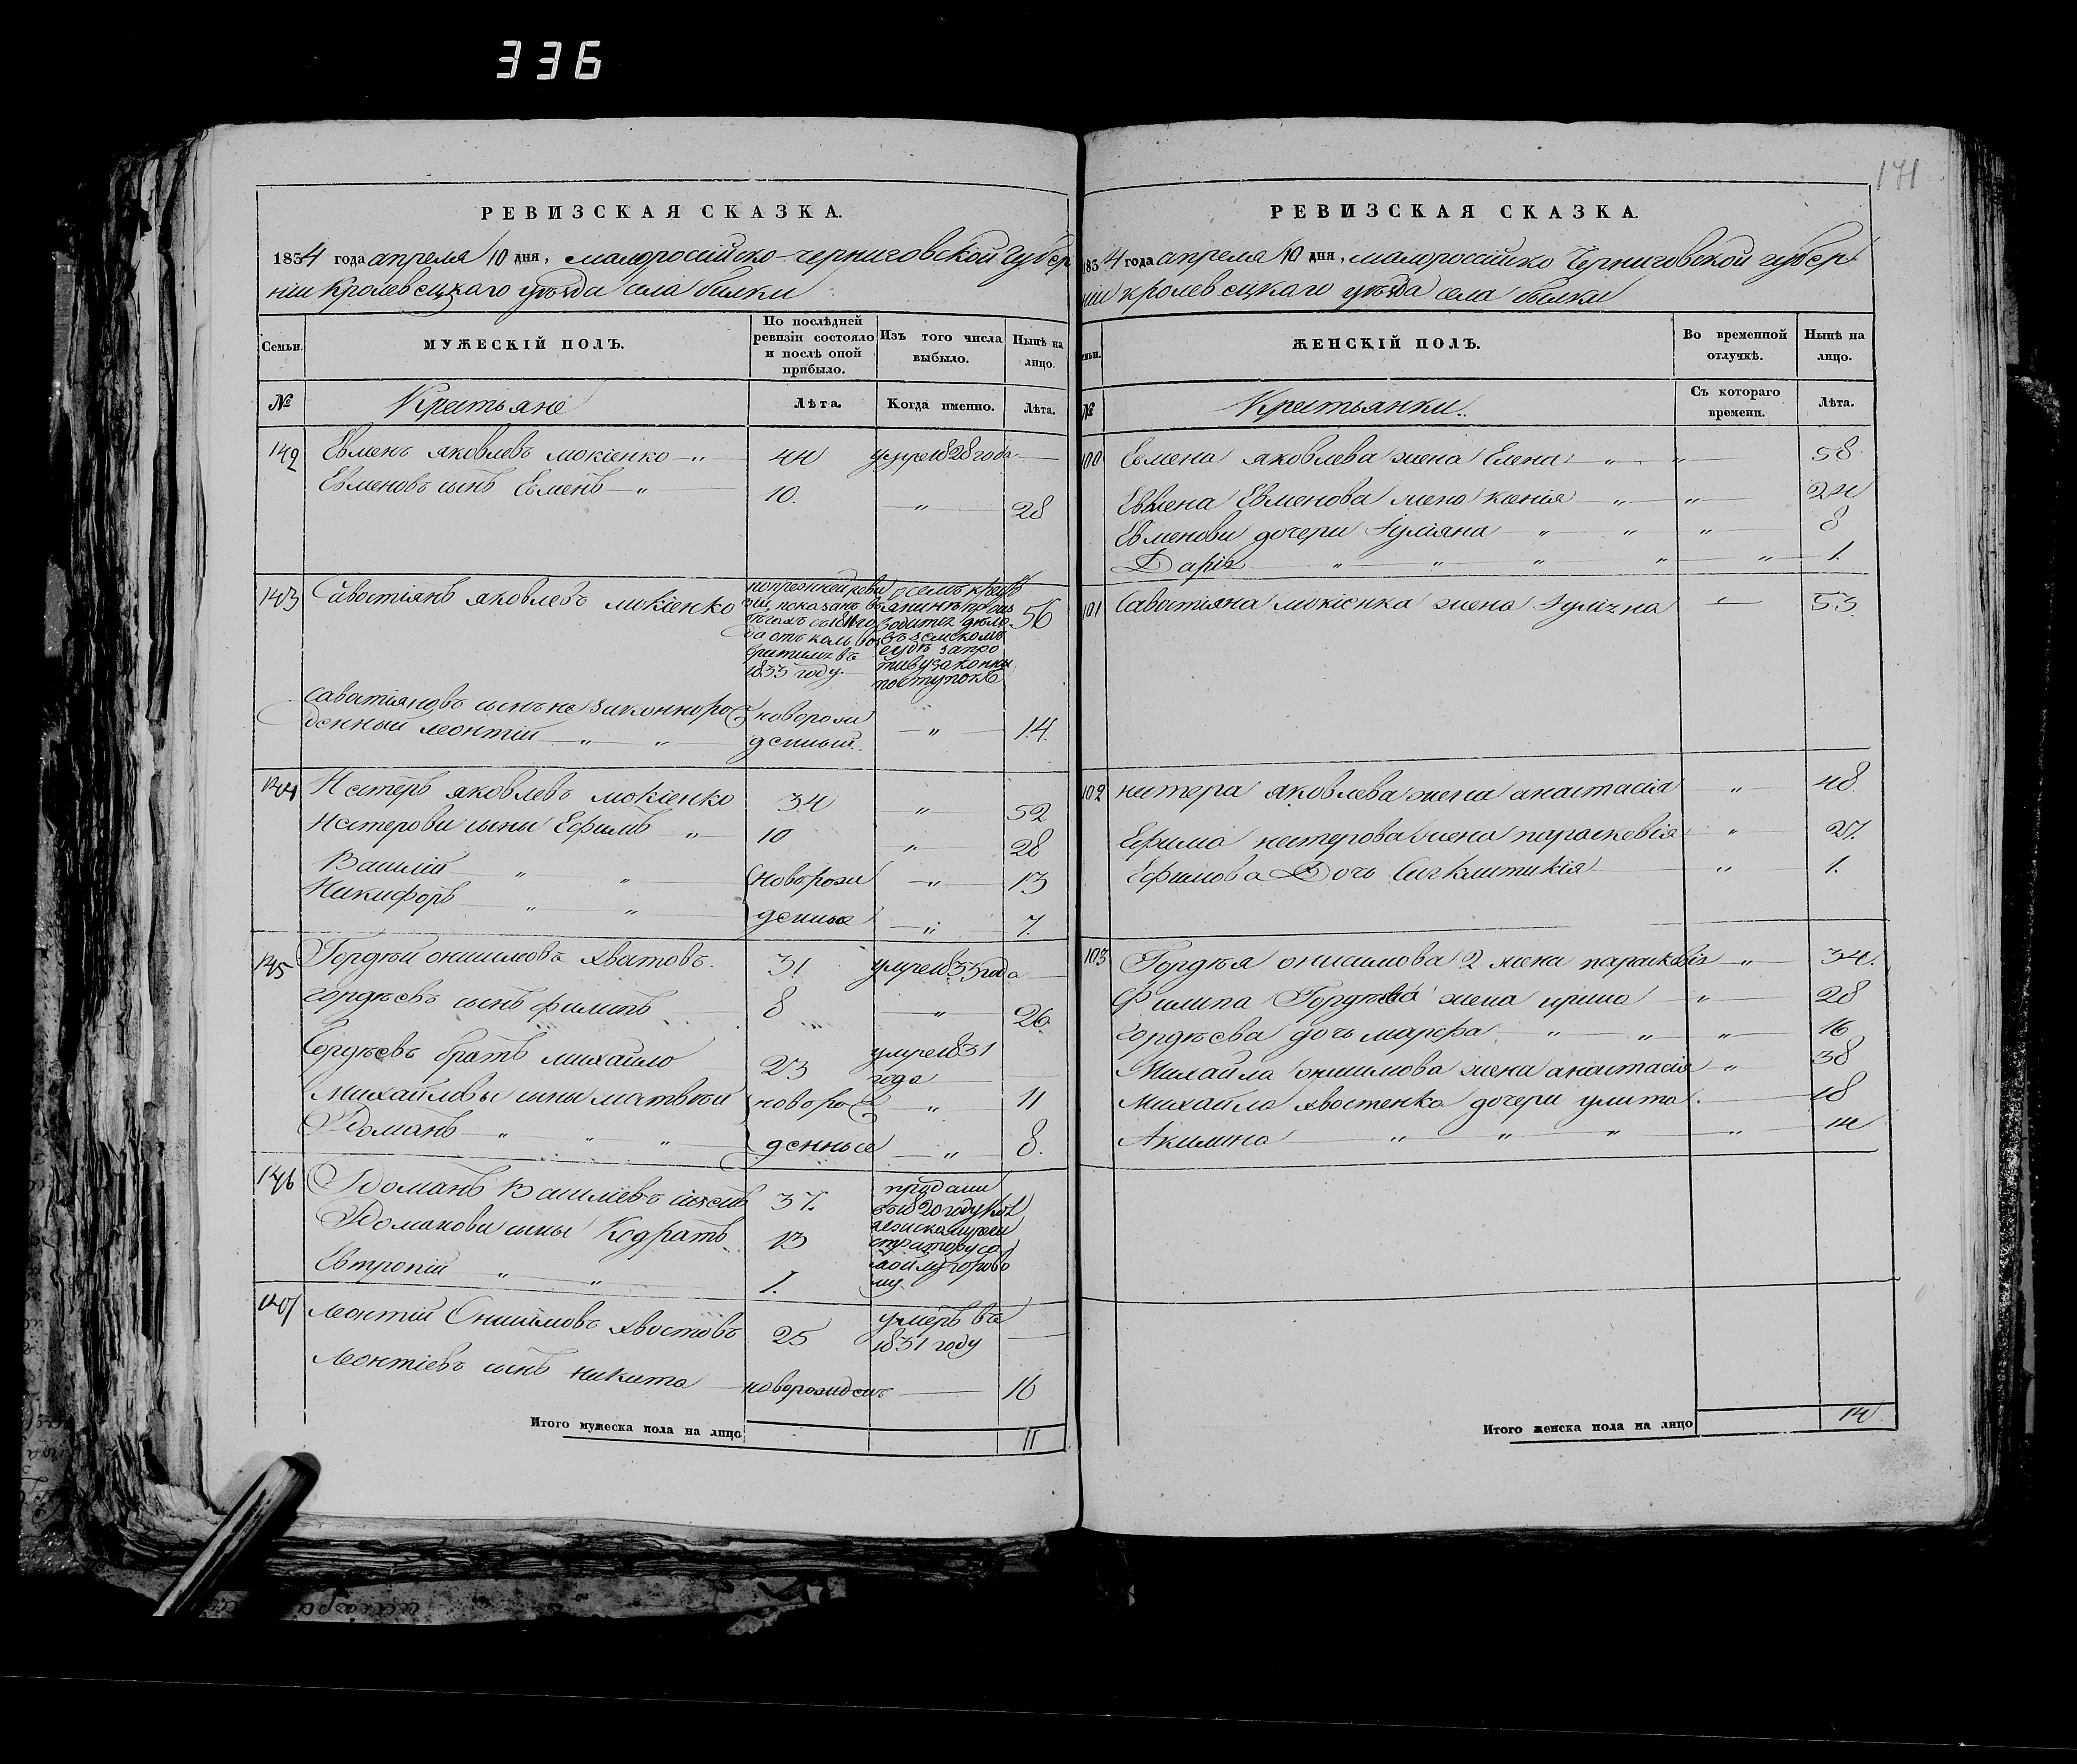 336
171
РЕВИЗСКАЯ СКАЗКА.
1834 года апреля 10 дня, малоросiйско-черниговской губер
нiи кролевецкаго уѣзда села билки
Семьи.
МУЖЕСКIЙ ПОЛЪ.
По послѣдней ревизiи состояло и послѣ оной прибыло.
Изъ того числа выбыло.
Нынѣ на лицо.
№
Крестьяне
Лѣта.
Когда именно.
Лѣта.
142 Евменъ яковлевъ мокiенко 44 умре 1828 года
Евменовъ сынъ Евменъ 10. 28
143 Савостiянъ яковлевъ мокiенко 56
1833 году.
савостiяновъ сынъ не законноро
денный леонтiй новорож 14.
денный.
144 Нестеръ яковлевъ мокiенко 34 52
Нестерови сыны Ефимъ 10 28
Василiй новорож 13
Никифоръ денные 7.
145 Гордѣй онисимовъ хвостовъ. 31 умре 1833 года
гордѣевъ сынъ филипъ 8 26.
Гордѣевъ братъ михайло 23 умре 1831
года
Михайловы сыны матвѣй новоро 11
Романъ денные 8.
146 Романъ Василiевъ 37. проданы
Романови сыны Кодратъ 13
Евтропiй 1.
147 леонтiй Онисимовъ хвостовъ 25 умеръ въ
1831 году
леонтiевъ сынъ никита новорожденъ 16
Итого мужеска пола на лицо 11
РЕВИЗСКАЯ СКАЗКА.
1834 года апреля 10 дня, малоросiйско Черниговской губер
нiи кролевецкаго уѣзда села билки
ЖЕНСКIЙ ПОЛЪ.
Во временной отлучкѣ.
Нынѣ на лицо.
№
Крестьянки.
Съ котораго времени.
Лѣта.
100 Евмена яковлева жена Елена 58
Евмена Евменова жена ксенiя 24
Евменови дочери Iулiяна 8
Дарiя 1.
101 Савостiяна мокiенка жена Iулiяна 53.
102 нестера яковлева жена анастасiя 48
Ефима нестерова жена параскевiя 27.
Ефимова Дочь Сигклитикiя 1.
103 Гордѣя онисимова 2 жена параскевiя 34.
Филипа Гордѣева жена ирина 28
гордѣева дочь марфа 16
Михайла онисимова жена анастасiя 38
михайла хвостенка дочери улита 18
Акилина 14
Итого женска пола на лицо 14